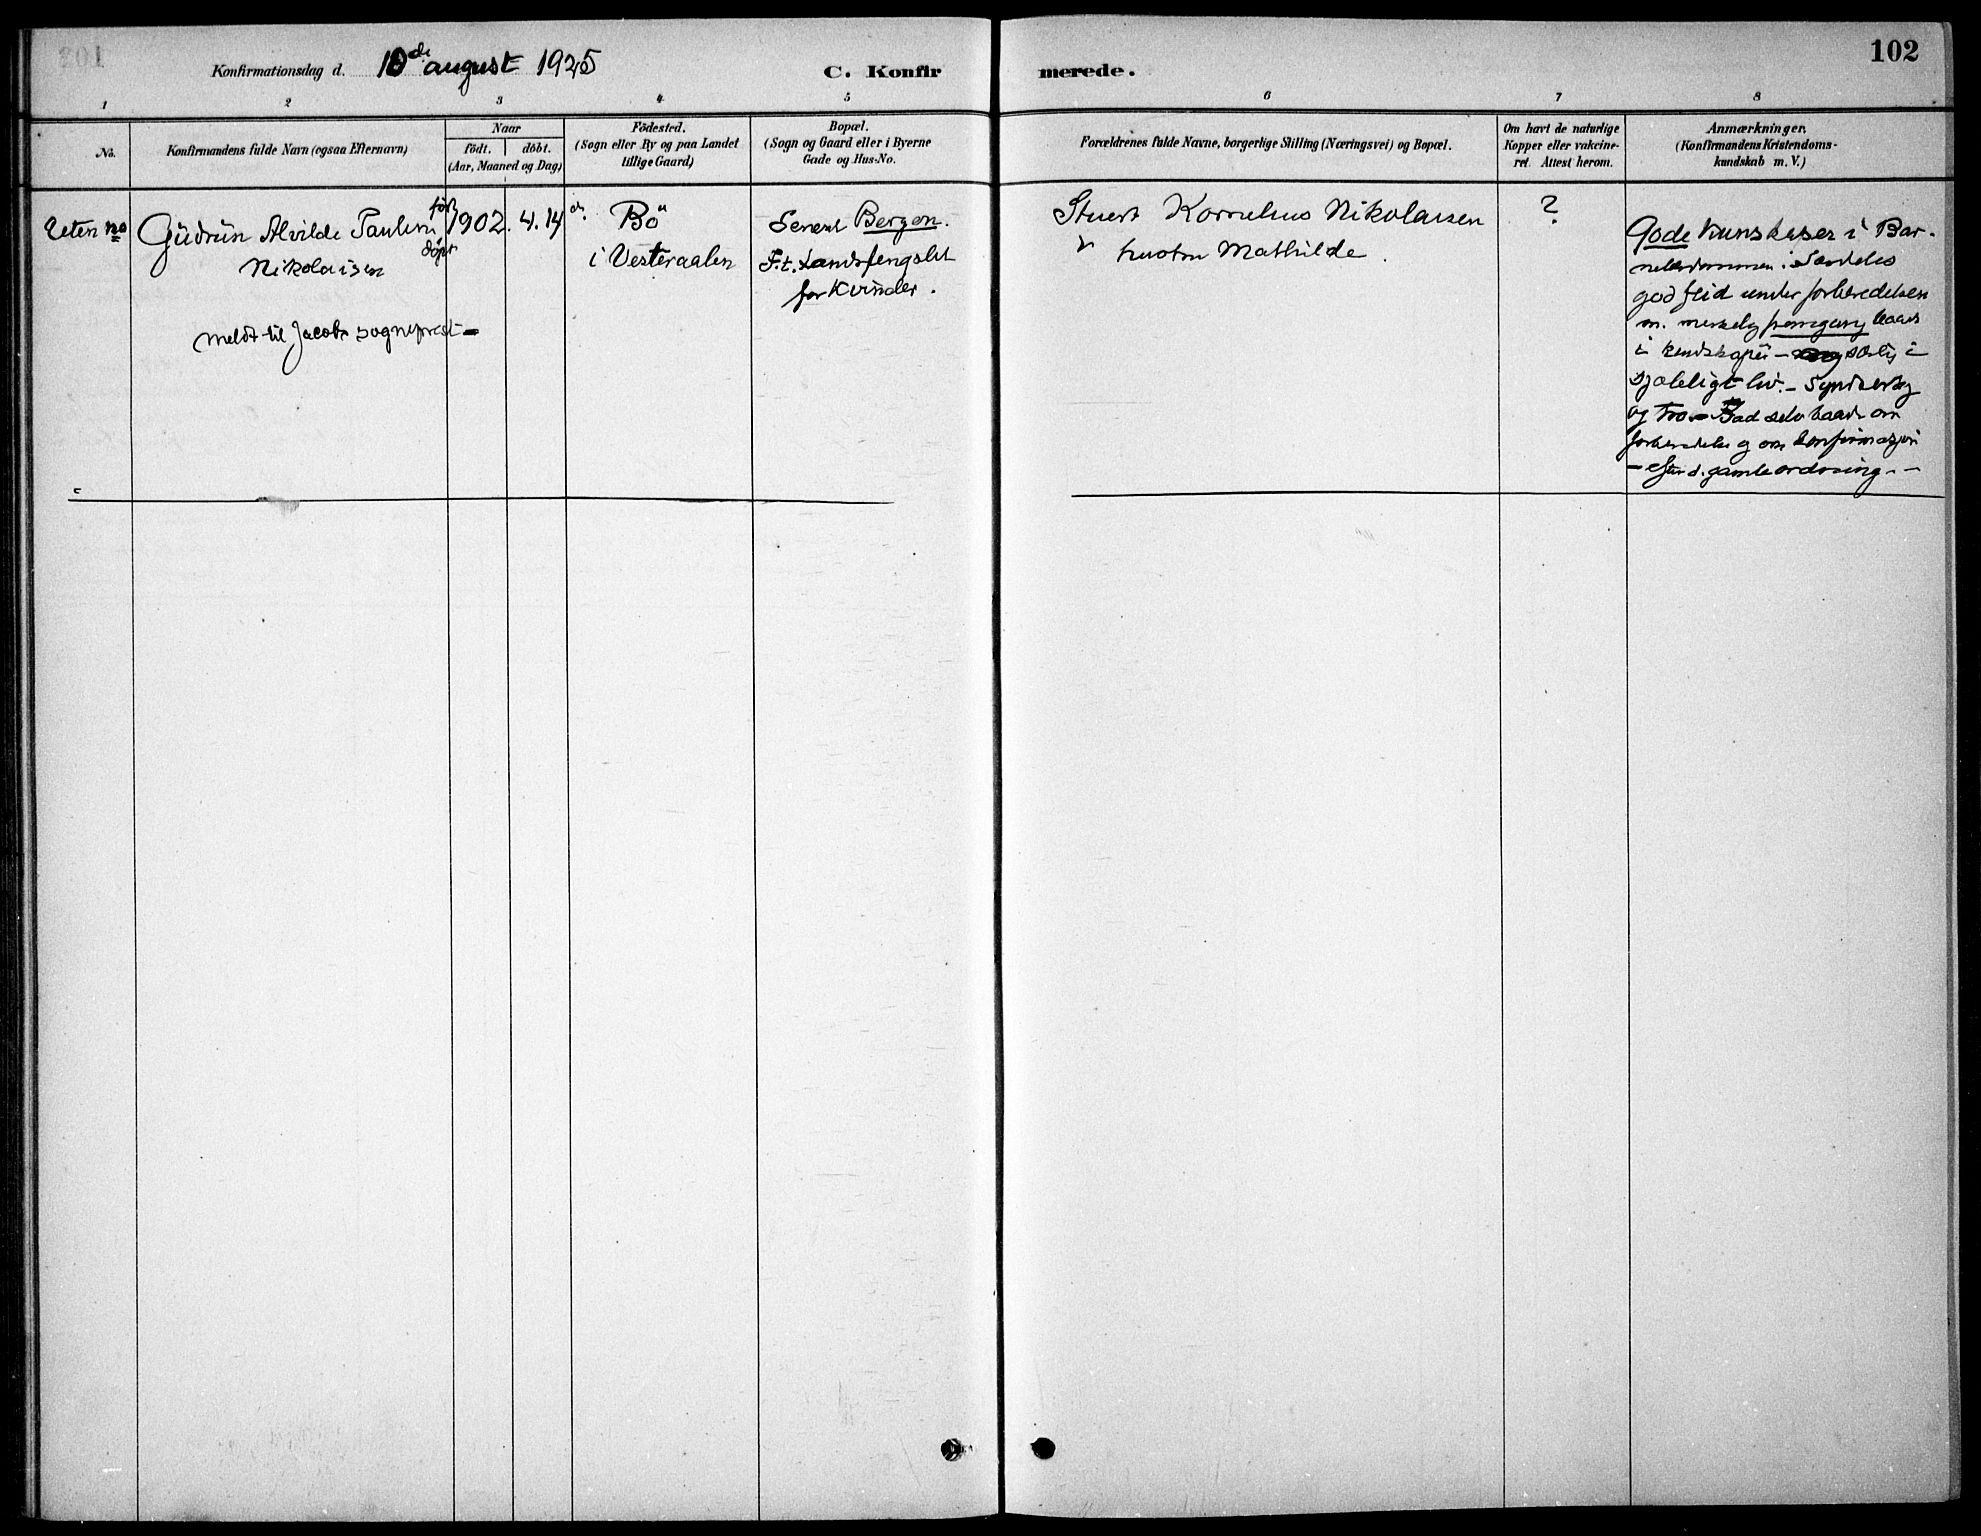 102
Konfirmationsdag d. 10de august 1925
C. Konfirmerede.
1 2 3 4 5 6 7 8
No.
Konfirmandens fulde Navn (ogsaa Efternavn)
Naar
födt. döbt.
(Aar, Maaned og Dag)
Födested.
(Sogn eller By og paa Landet
tillige Gaard)
Bopæl.
(Sogn og Gaard eller i Byerne
Gade og Hus-No.
Forældrenes fulde Navne, borgerlige Stilling (Næringsvei) og Bopæl.
Om havt de naturlige
Kopper eller vakcine-
ret. Attest herom.
Anmærkninger.
(Konfirmandens Kristendoms-
kundskab m. V.)
Uten no
Gudrun Alvilde Paulen
Nikolaisen
meldt til Jacobs sogneprest
föd 1902. 4. 14
döpt
Bö
i Vesteraalen
Senest Bergen.
F. t. Landsfengslet
for Kvinder.
Stuert Kornelius Nikolaisen
hustru Mathilde.
?
Gode kunskaper i Bar-
nelærdommen. Særdeles
god flid under forberedelsen
m. merkelig fremgang baade
i kundskaper – særlig i
sjæleligt liv. –
og tro – Bad selv baade om
forberedelse og om konfirmasjon
– efter d. gamle ordning. –